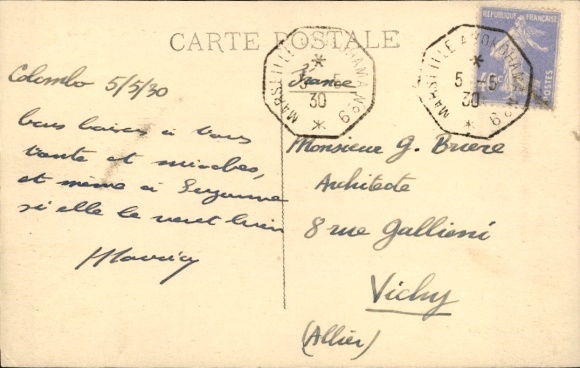 CARTE POSTALE
RÉPUBLIQUE FRANÇAISE
POSTES
MARSEILLE A YOKOHAMA Nº9
5 -5
30
MARSEILLE A YOKOHAMA Nº9
5 -5
30
Colombo 5/5/30
bons baisers à tous
tante et
et même à Suzanne
si elle le veut bien
France
Monsieur G. Briere
Architecte
8 rue Gallieni
Vichy
(Allier)